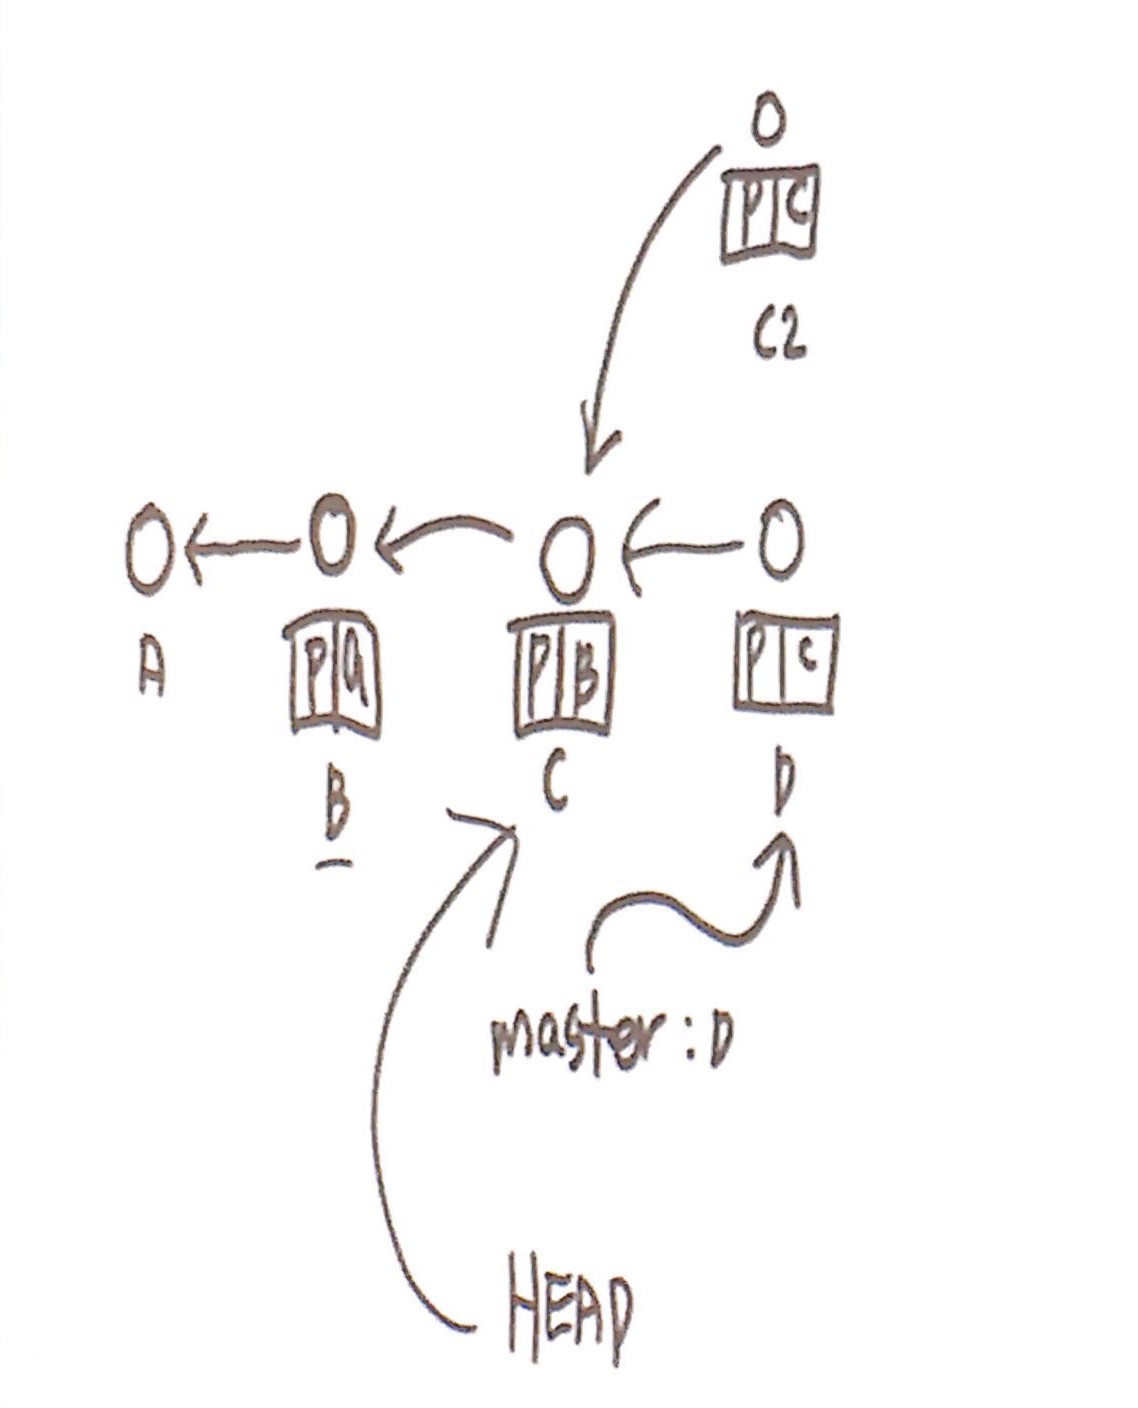 P C
C2
A
P a
B
P B
C
P C
D
master : D
HEAD